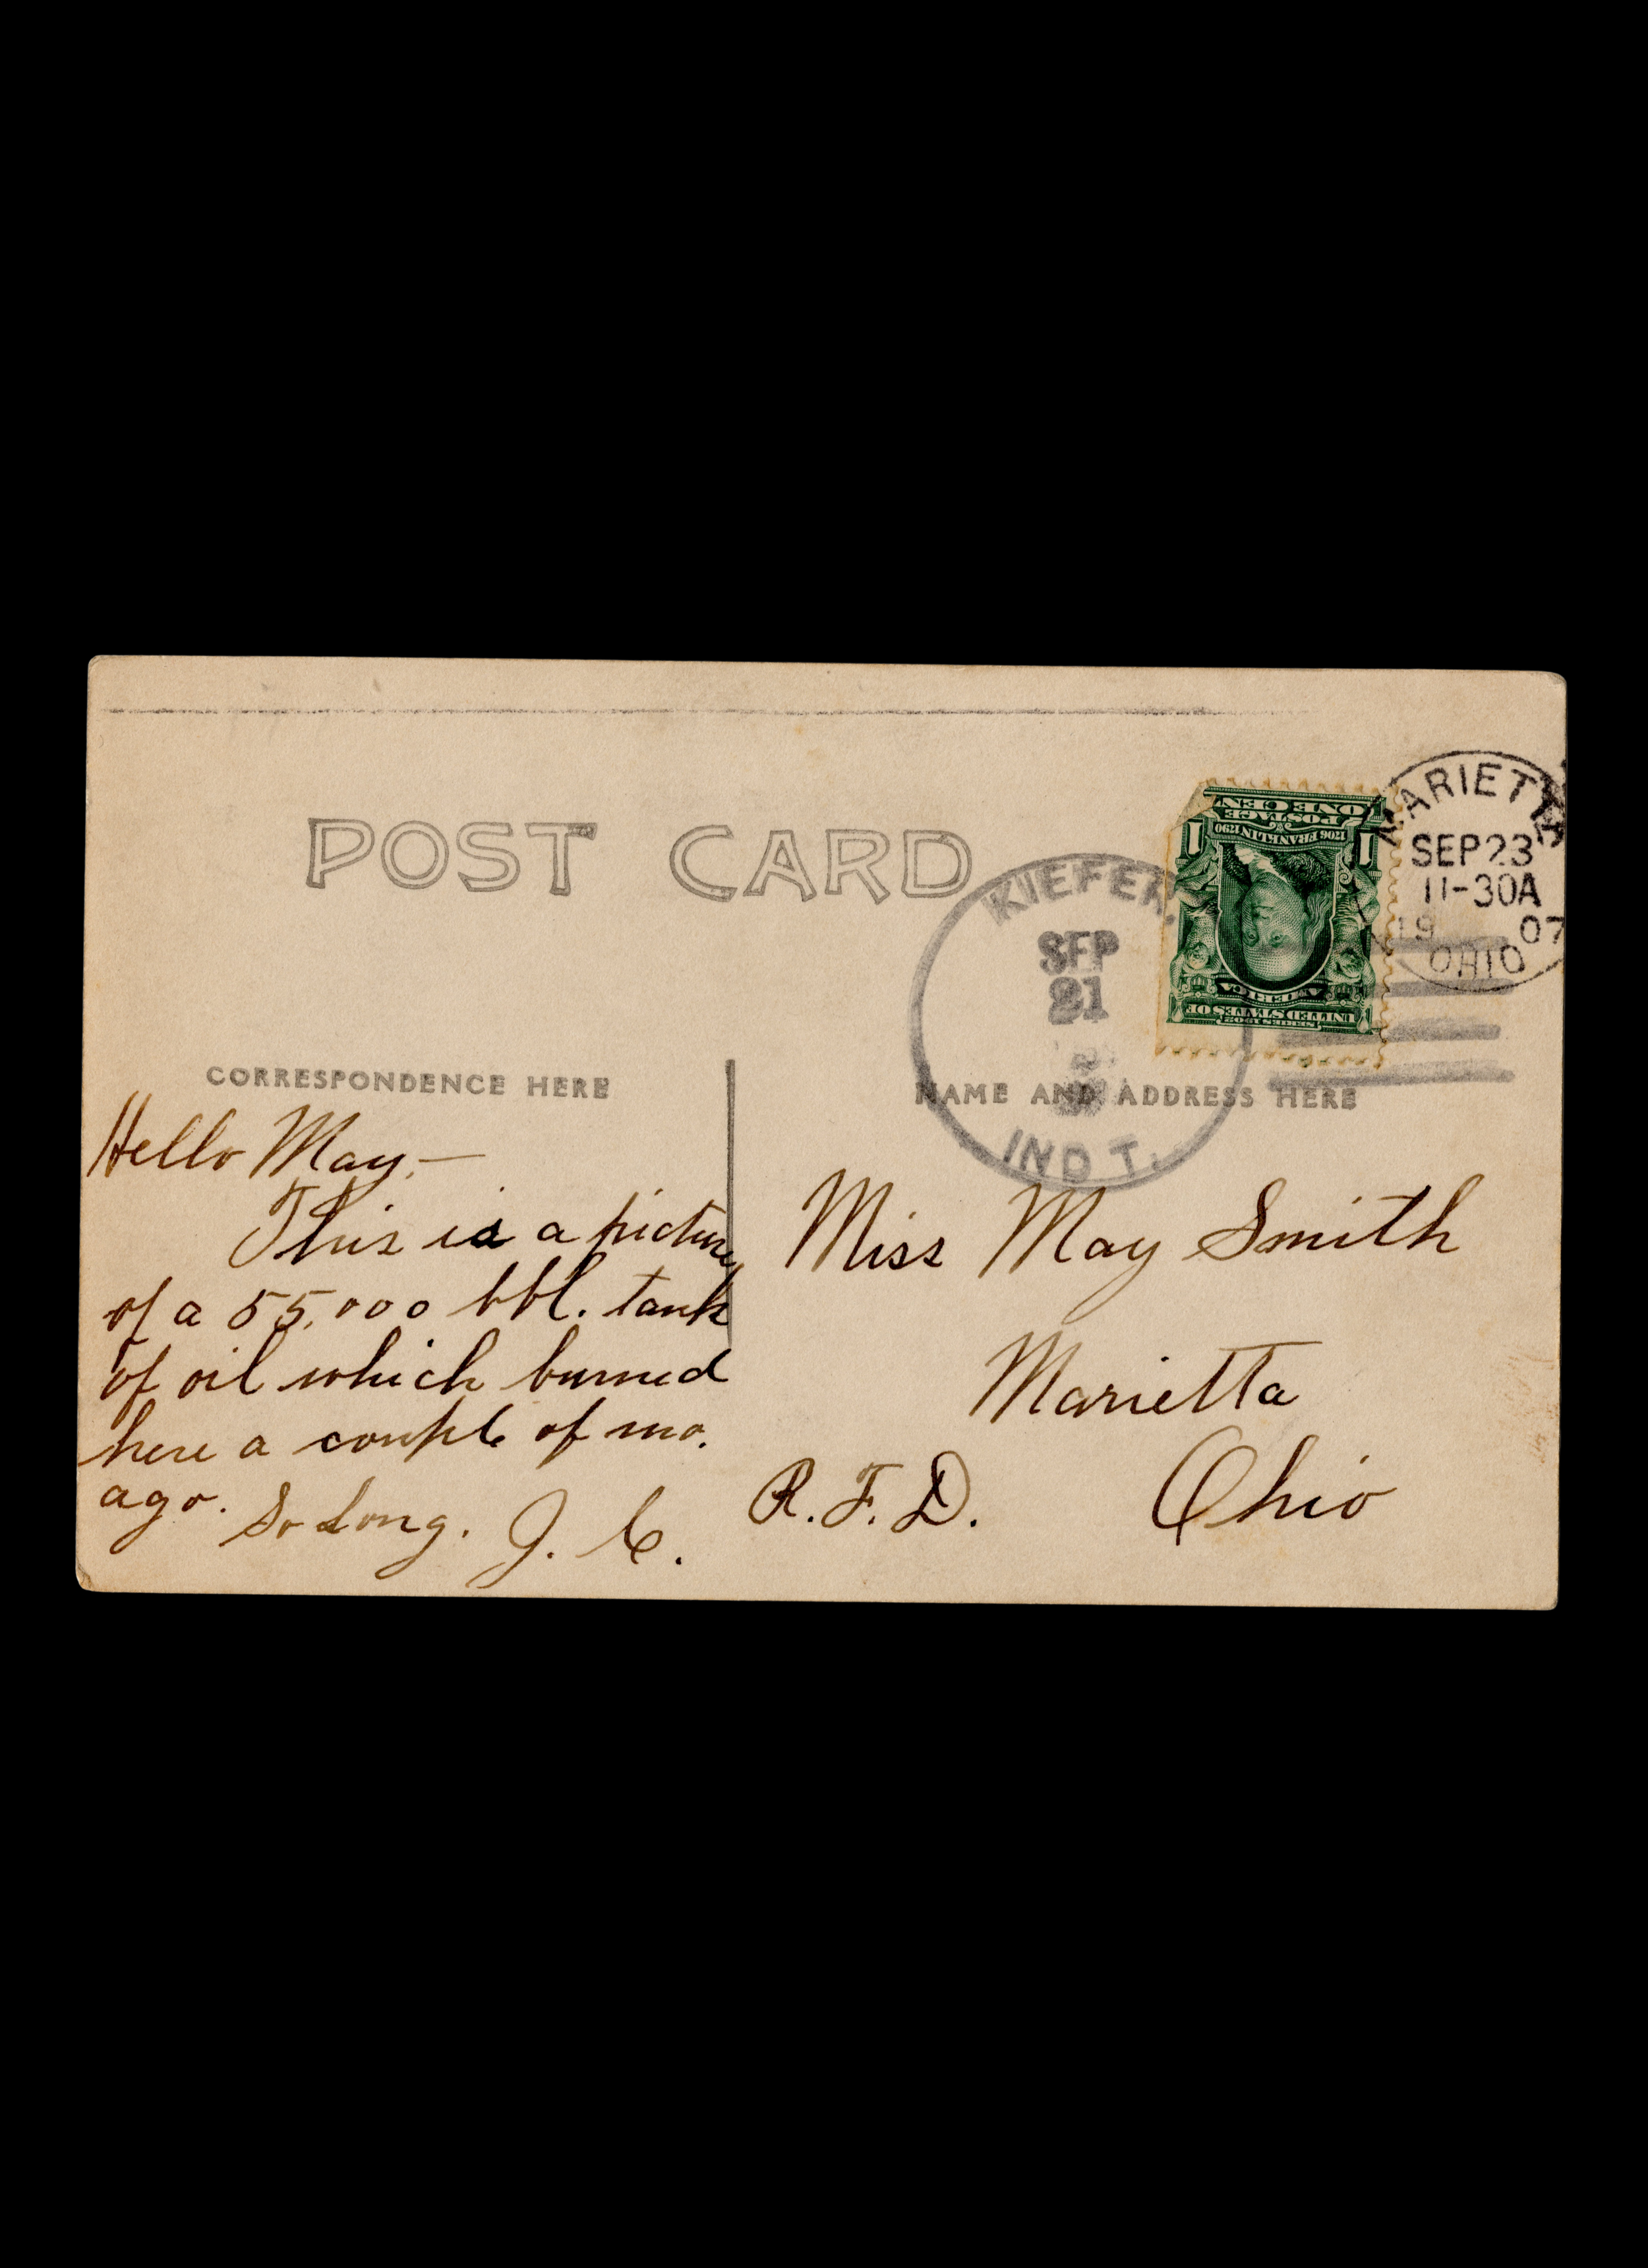 POST CARD
KIEFER.
SEP
21
IND T.
ONE CENT
POSTAGE
1706 FRANKLIN 1790
1 1
AMERICA
UNITED STATES OF
SERIES 1902
MARIETTA
SEP 23
11-30A
19 07
OHIO
CORRESPONDENCE HERE
NAME AND ADDRESS HERE
Hello May,—
This is a picture
of a 55,000 bbl. tank
of oil which burned
here a couple of mo.
ago. So Long. J. C.
Miss May Smith
Marietta
R.F.D. Ohio